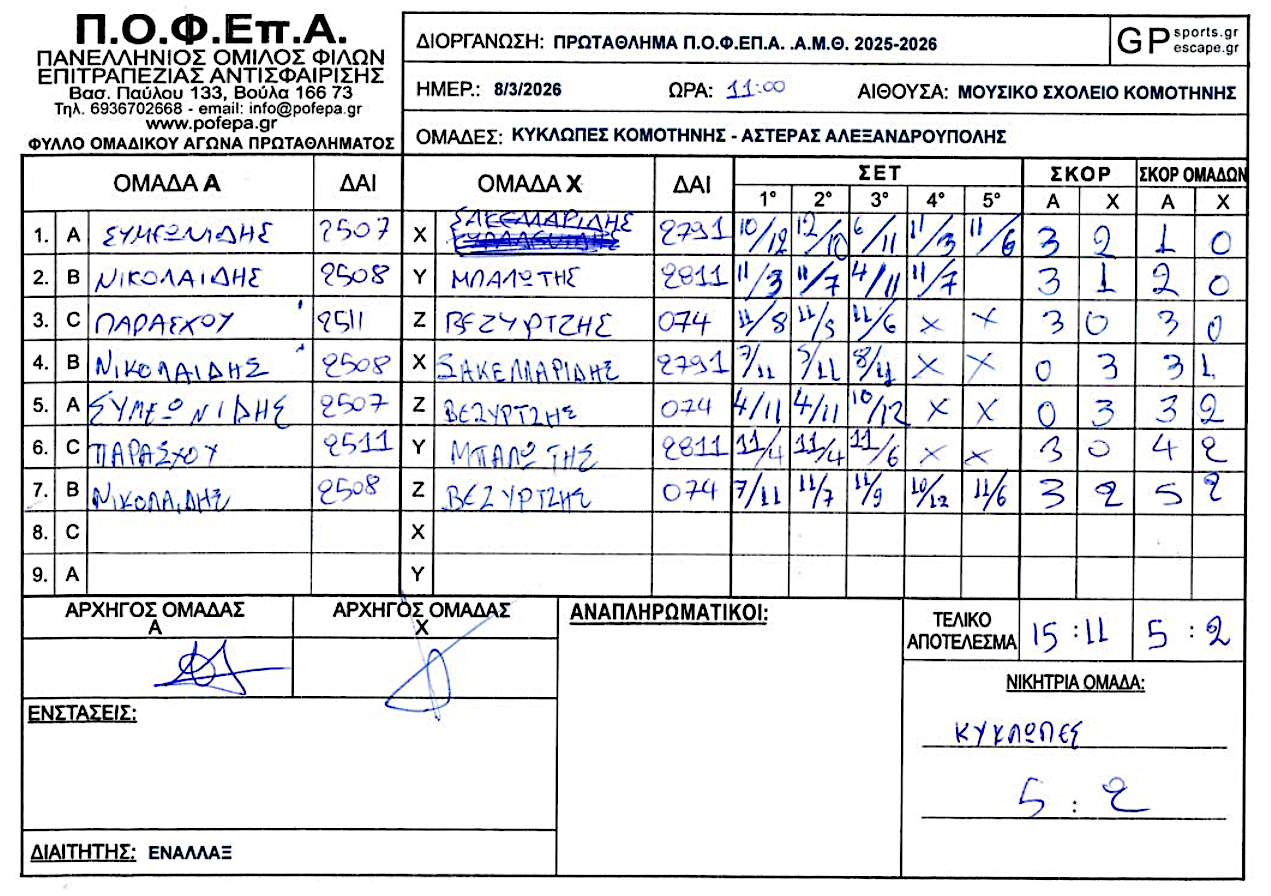 Π.Ο.Φ.Επ.Α.
ΠΑΝΕΛΛΗΝΙΟΣ ΟΜΙΛΟΣ ΦΙΛΩΝ
ΕΠΙΤΡΑΠΕΖΙΑΣ ΑΝΤΙΣΦΑΙΡΙΣΗΣ
Βασ. Παύλου 133, Βούλα 166 73
Τηλ. 6936702668 - email: info@pofepa.gr
www.pofepa.gr
ΦΥΛΛΟ ΟΜΑΔΙΚΟΥ ΑΓΩΝΑ ΠΡΩΤΑΘΛΗΜΑΤΟΣ
ΔΙΟΡΓΑΝΩΣΗ: ΠΡΩΤΑΘΛΗΜΑ Π.Ο.Φ.ΕΠ.Α. .Α.Μ.Θ. 2025-2026
GP sports.gr
escape.gr
ΗΜΕΡ.: 8/3/2026 ΩΡΑ: 11:00 ΑΙΘΟΥΣΑ: ΜΟΥΣΙΚΟ ΣΧΟΛΕΙΟ ΚΟΜΟΤΗΝΗΣ
ΟΜΑΔΕΣ: ΚΥΚΛΩΠΕΣ ΚΟΜΟΤΗΝΗΣ - ΑΣΤΕΡΑΣ ΑΛΕΞΑΝΔΡΟΥΠΟΛΗΣ
ΟΜΑΔΑ Α ΔΑΙ ΟΜΑΔΑ Χ ΔΑΙ ΣΕΤ ΣΚΟΡ ΣΚΟΡ ΟΜΑΔΩΝ
1° 2° 3° 4° 5° Α Χ Α Χ
1. Α ΣΥΜΕΩΝΙΔΗΣ 2507 Χ ΣΑΚΕΛΛΑΡΙΔΗΣ 2791 10/12 12/10 6/11 11/3 11/6 3 2 1 0
2. Β ΝΙΚΟΛΑΙΔΗΣ 2508 Υ ΜΠΑΛΩΤΗΣ 2811 11/3 11/7 4/11 11/7 3 1 2 0
3. C ΠΑΡΑΣΧΟΥ 2511 Ζ ΒΕΖΥΡΤΖΗΣ 074 11/8 11/5 11/6 X X 3 0 3 0
4. Β ΝΙΚΟΛΑΙΔΗΣ 2508 Χ ΣΑΚΕΛΛΑΡΙΔΗΣ 2791 7/11 5/11 8/11 X X 0 3 3 1
5. Α ΣΥΜΕΩΝΙΔΗΣ 2507 Ζ ΒΕΖΥΡΤΖΗΣ 074 4/11 4/11 10/12 X X 0 3 3 2
6. C ΠΑΡΑΣΧΟΥ 2511 Υ ΜΠΑΛΩΤΗΣ 2811 11/4 11/4 11/6 X X 3 0 4 2
7. Β ΝΙΚΟΛΑΙΔΗΣ 2508 Ζ ΒΕΖΥΡΤΖΗΣ 074 7/11 11/7 11/9 10/12 11/6 3 2 5 2
8. C Χ
9. Α Υ
ΑΡΧΗΓΟΣ ΟΜΑΔΑΣ Α ΑΡΧΗΓΟΣ ΟΜΑΔΑΣ Χ ΑΝΑΠΛΗΡΩΜΑΤΙΚΟΙ:
ΤΕΛΙΚΟ ΑΠΟΤΕΛΕΣΜΑ 15 : 11 5 : 2
ΝΙΚΗΤΡΙΑ ΟΜΑΔΑ:
ΕΝΣΤΑΣΕΙΣ:
ΚΥΚΛΩΠΕΣ
5 : 2
ΔΙΑΙΤΗΤΗΣ: ΕΝΑΛΛΑΞ